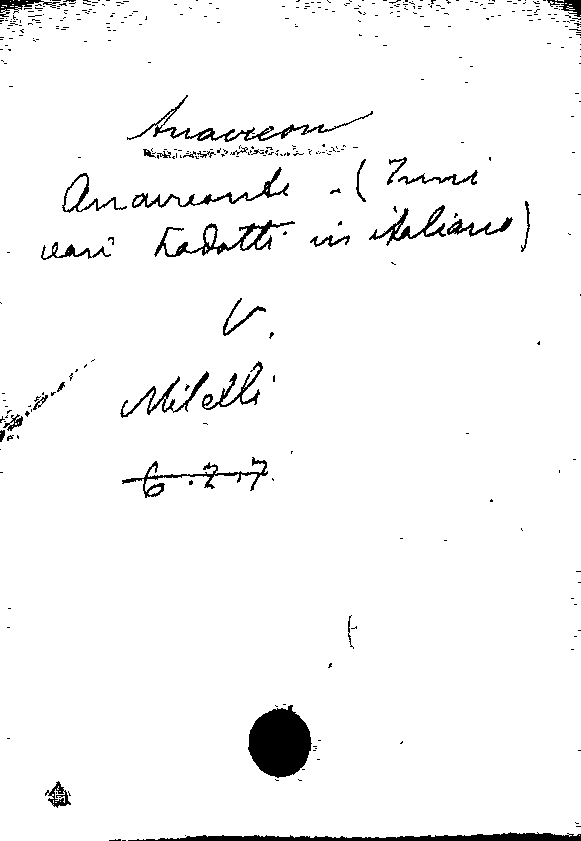 Anacreon
Anacreonte - (Inni
vari tradotti in italiano)
V.
Milelli
6.2.7.